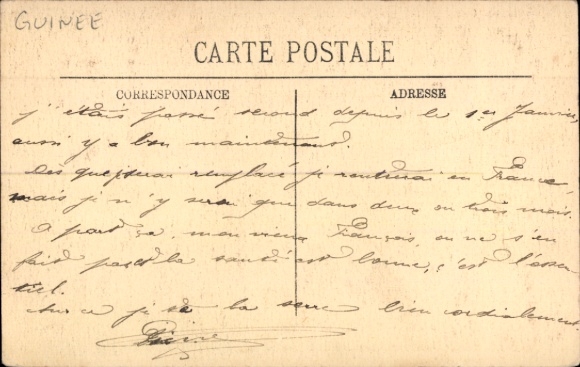 GUINEE
CARTE POSTALE
CORRESPONDANCE
ADRESSE
j'étais passé second depuis le 1er Janvier,
aussi y a bon maintenant.
Dès que serai remplacé je rentrerai en France,
mais je n'y serai que dans deux ou trois mois.
A part ça, mon vieux François, on ne s'en
fait pas et la santé est bonne, c'est l'essen
tiel.
Sur ce je te la serre bien cordialement.
Pierre